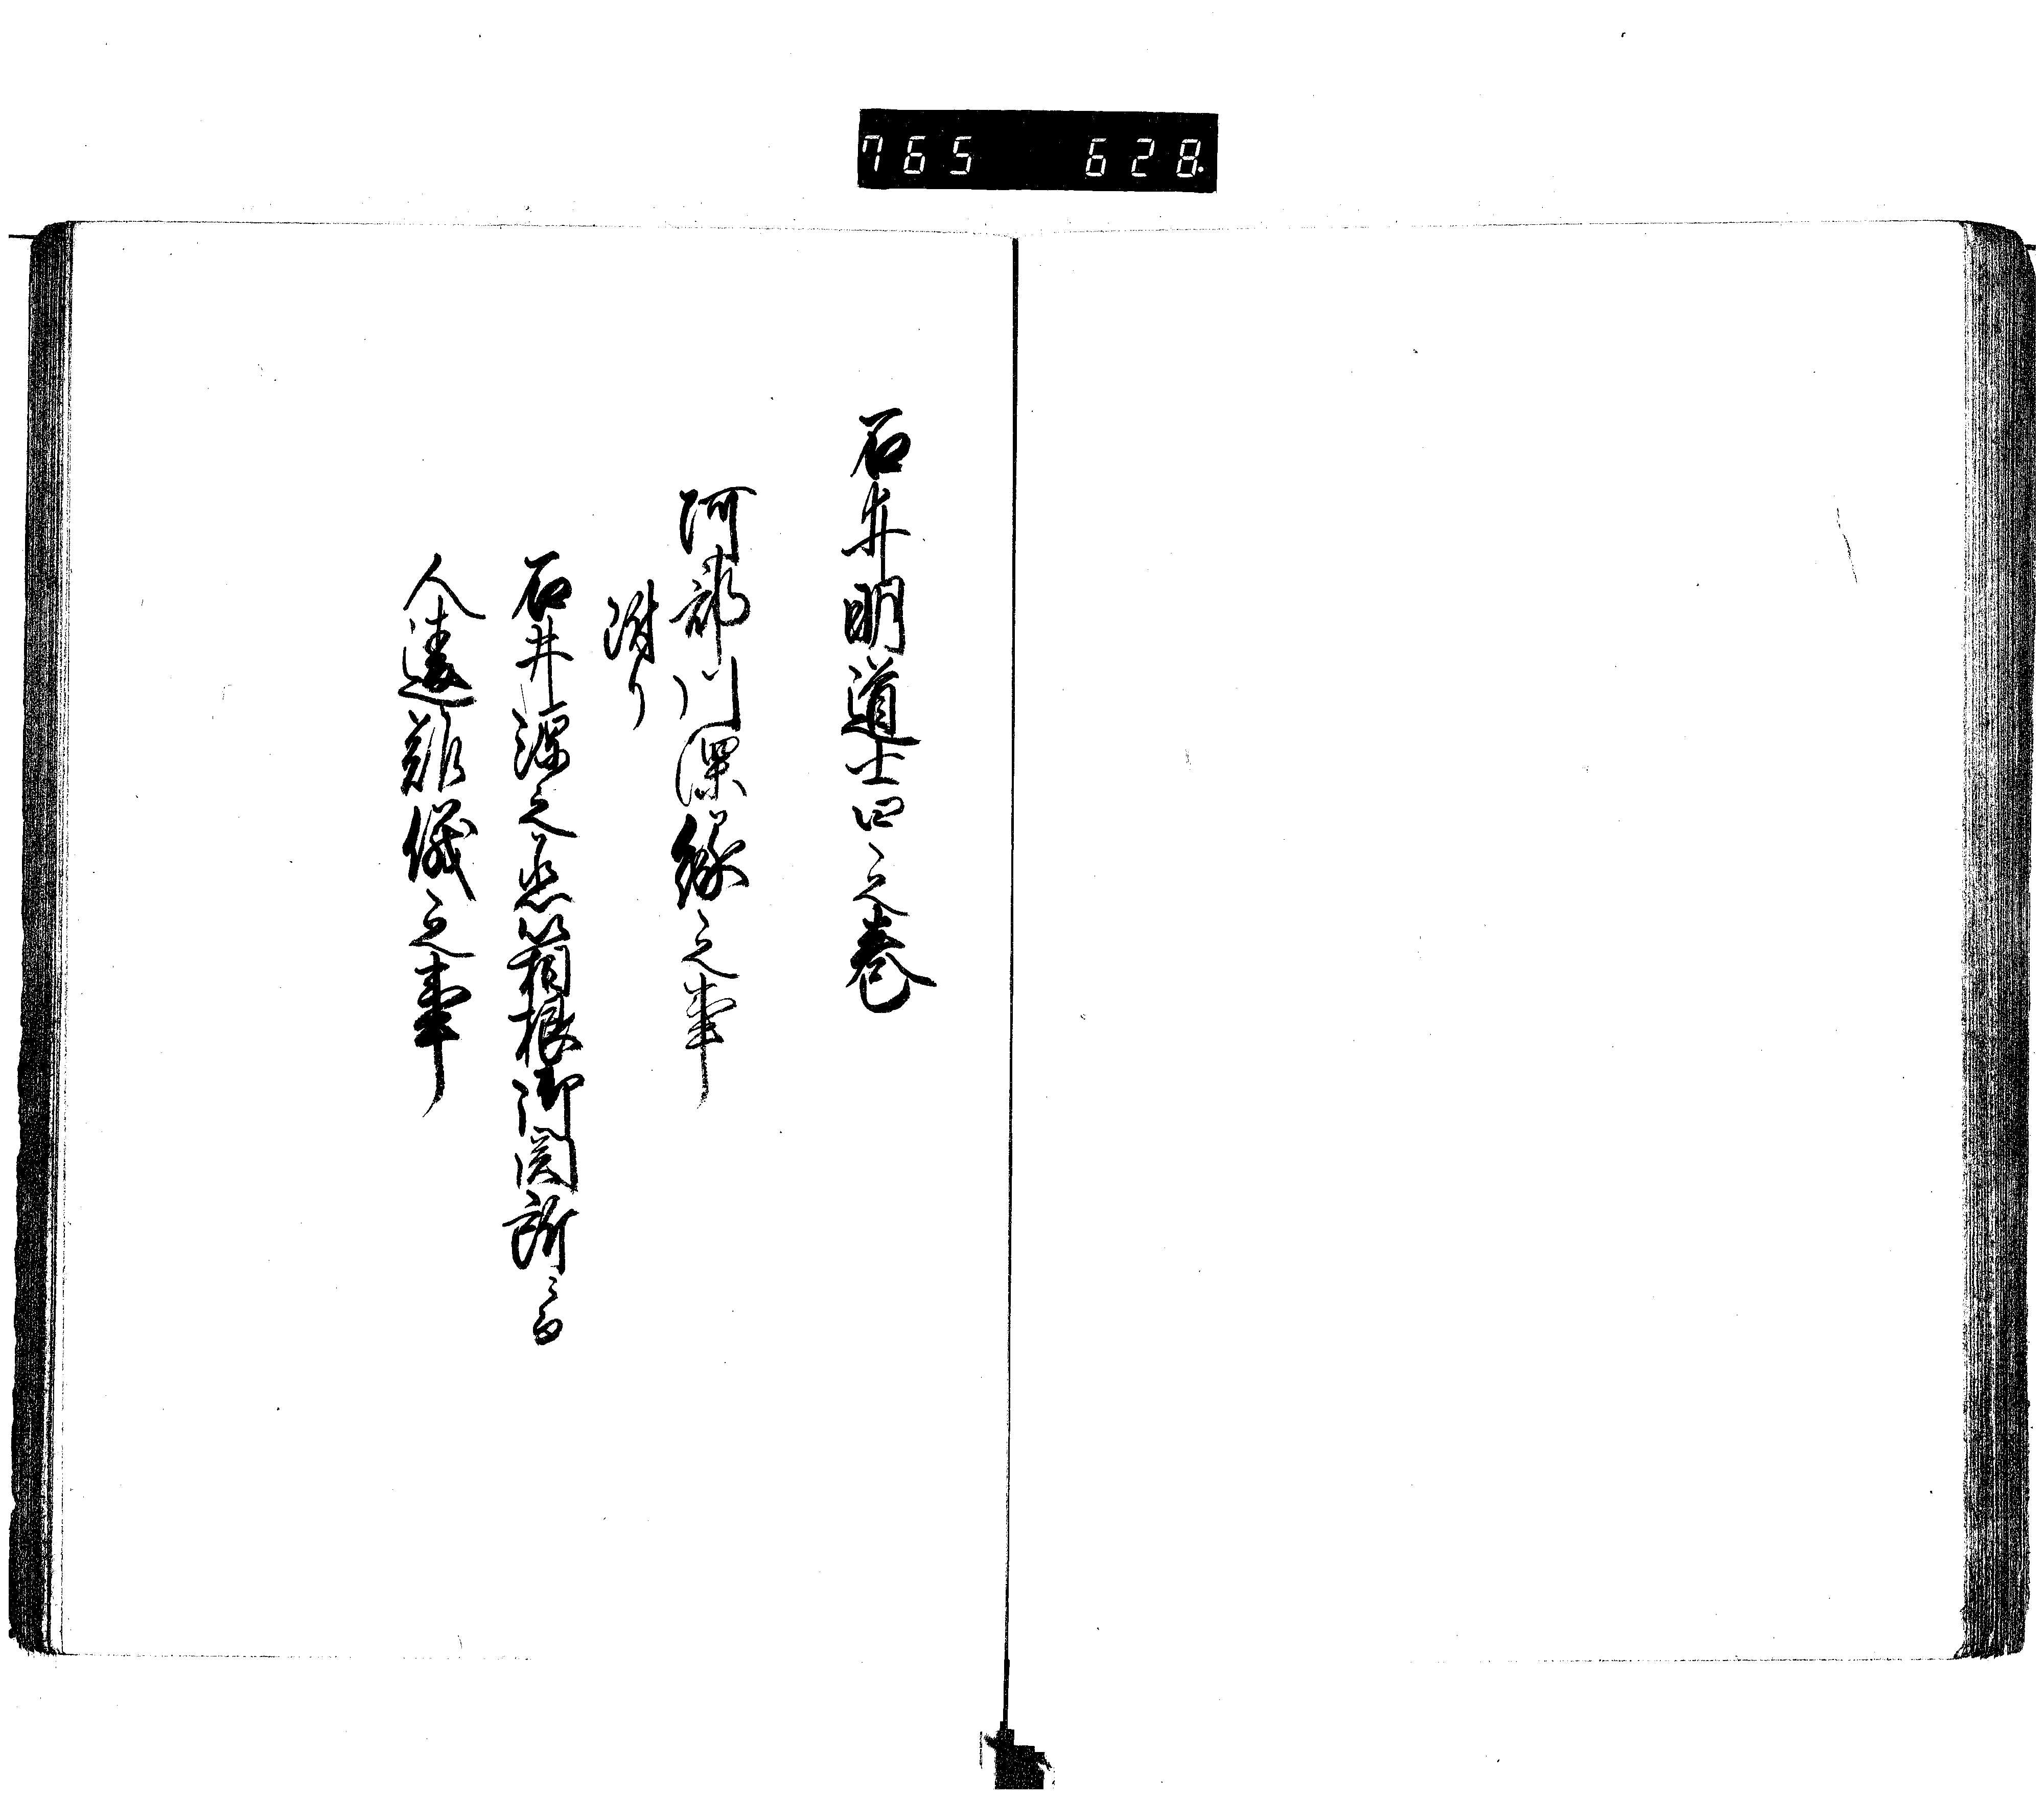 765 628
石井明道士四之巻
阿部川深縁之事
附り
石井源之丞箱根御関所ニ而
人違難儀之事